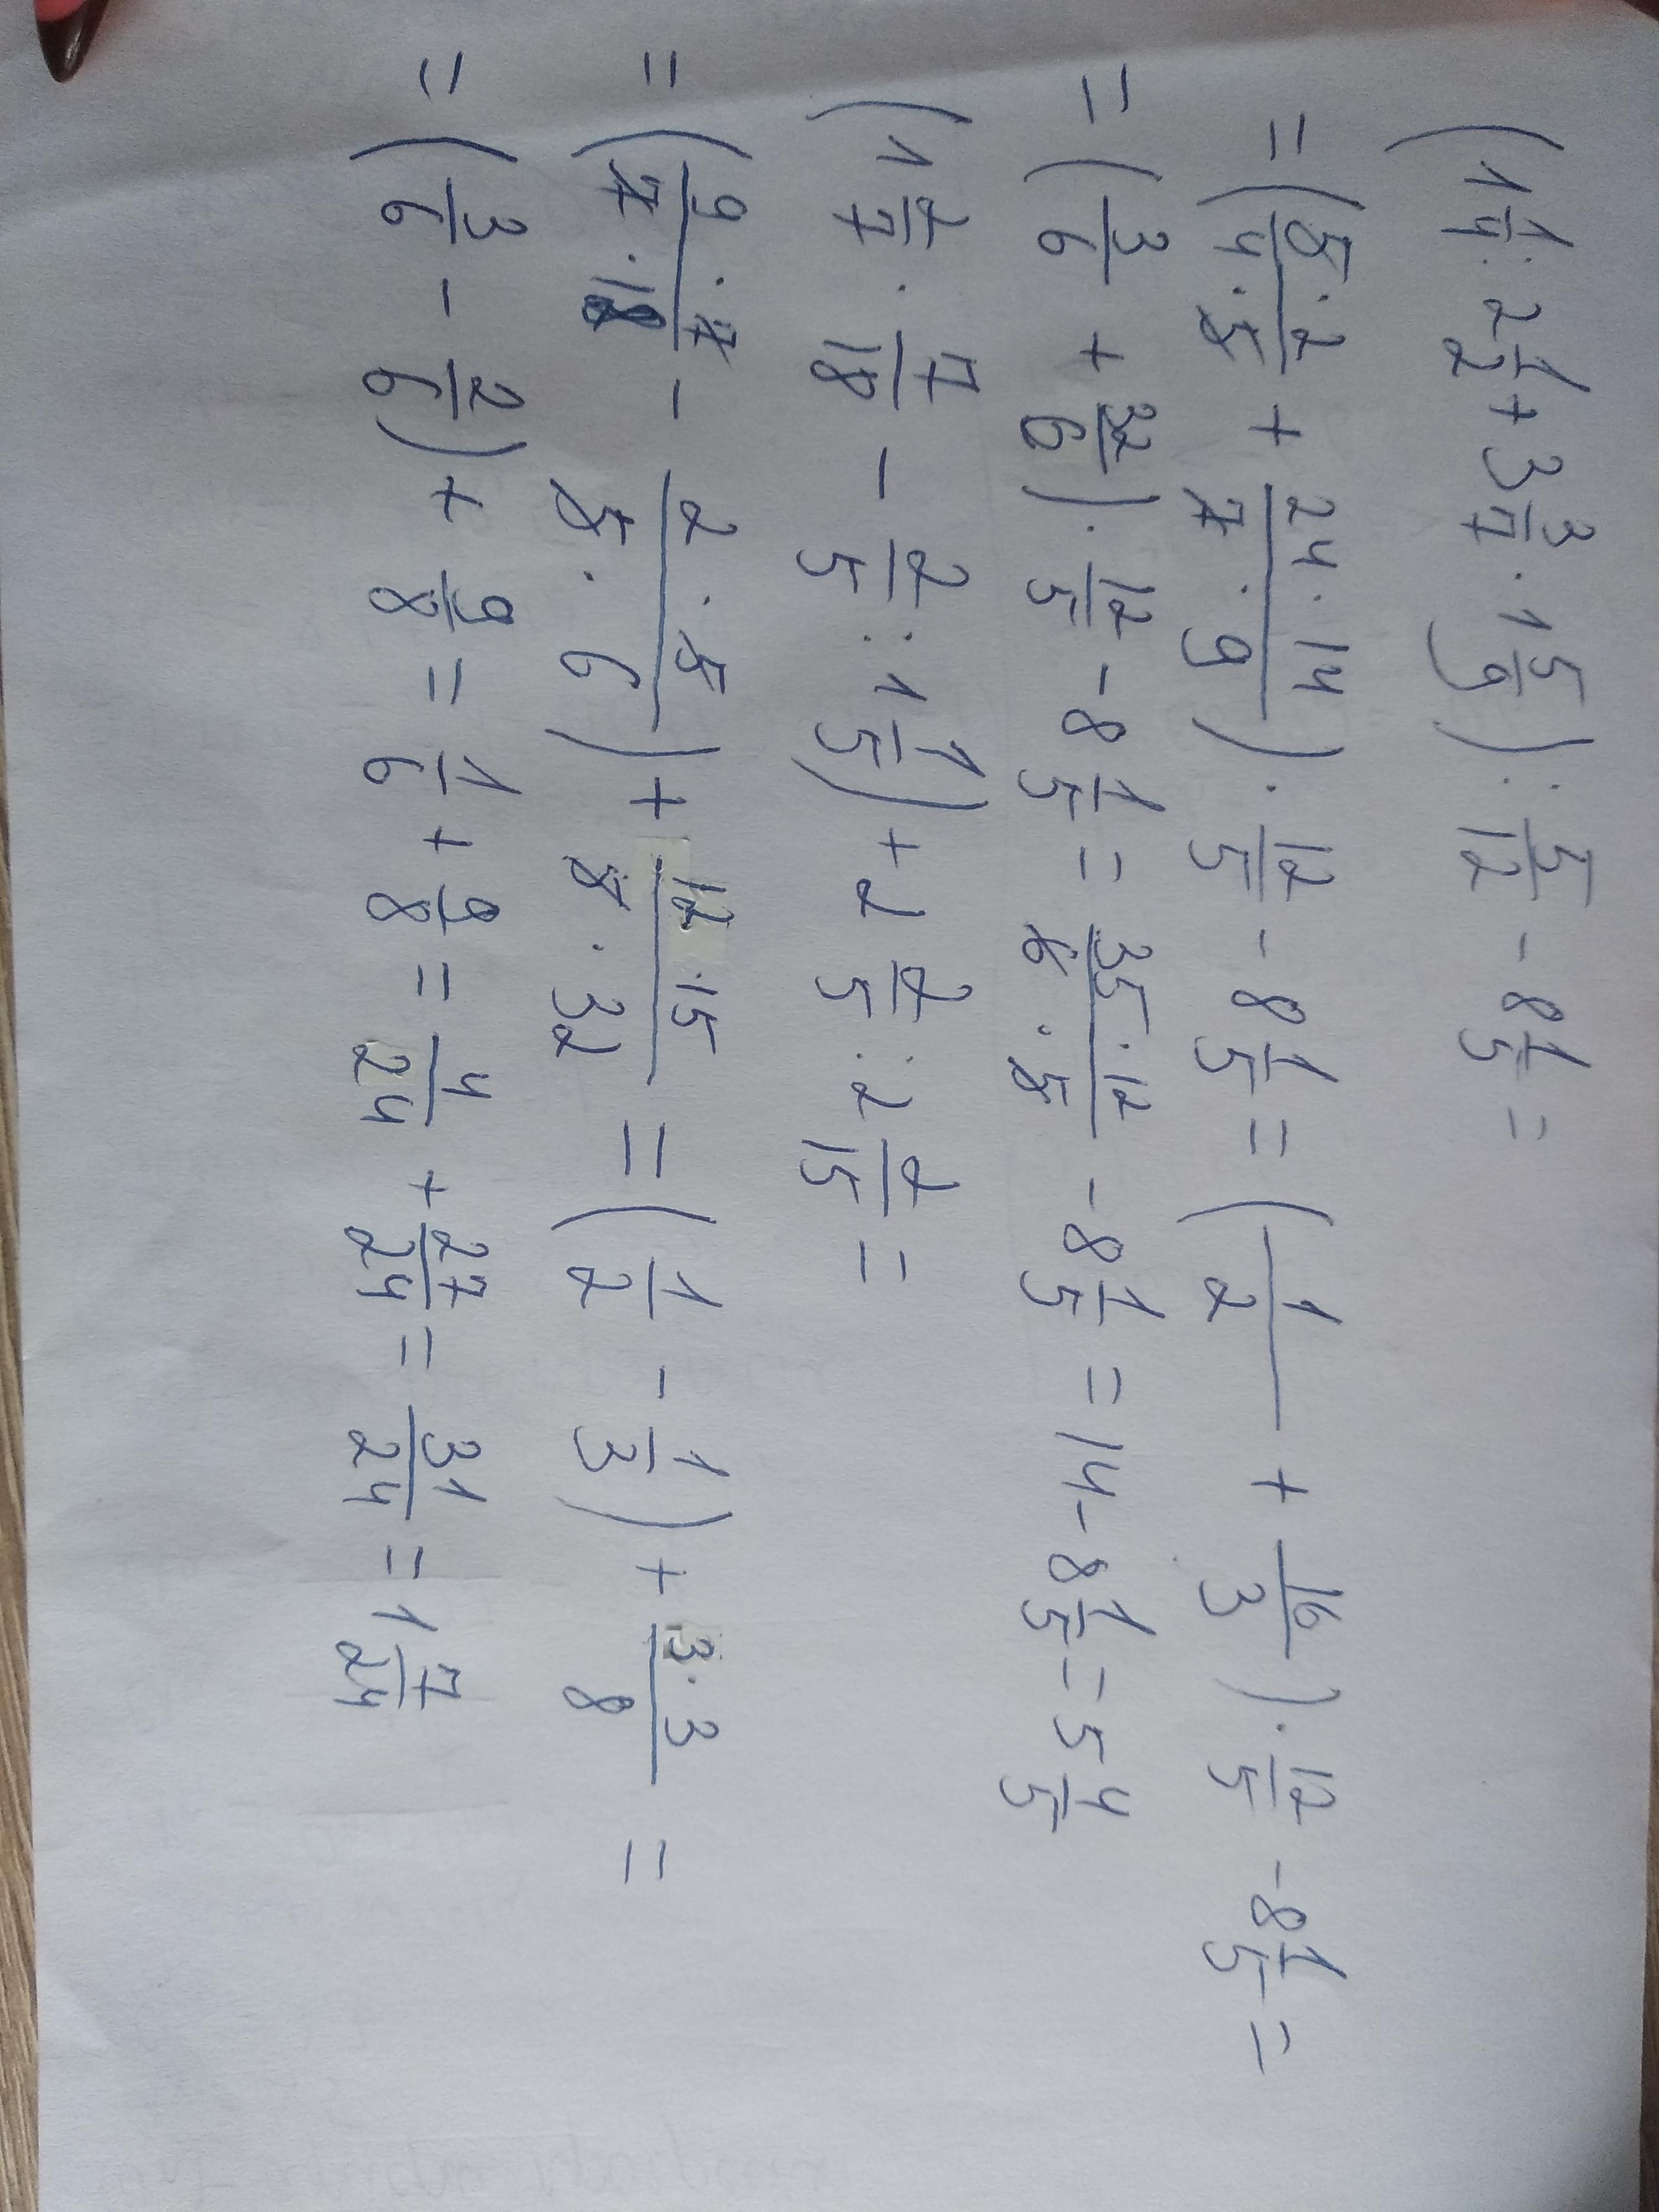 (1 1/4 : 2 1/2 + 3 3/7 · 1 5/9) : 5/12 - 8 1/5 =
= (5·2/4·5 + 24·14/7·9) · 12/5 - 8 1/5 = (1/2 + 16/3) · 12/5 - 8 1/5 =
= (3/6 + 32/6) · 12/5 - 8 1/5 = 35·12/6·5 - 8 1/5 = 14 - 8 1/5 = 5 4/5
(1 2/7 · 7/18 - 2/5 : 1 1/5) + 2 2/5 : 2 2/15 =
= (9·7/7·18 - 2·5/5·6) + 12·15/5·32 = (1/2 - 1/3) + 3·3/8 =
= (3/6 - 2/6) + 9/8 = 1/6 + 9/8 = 4/24 + 27/24 = 31/24 = 1 7/24